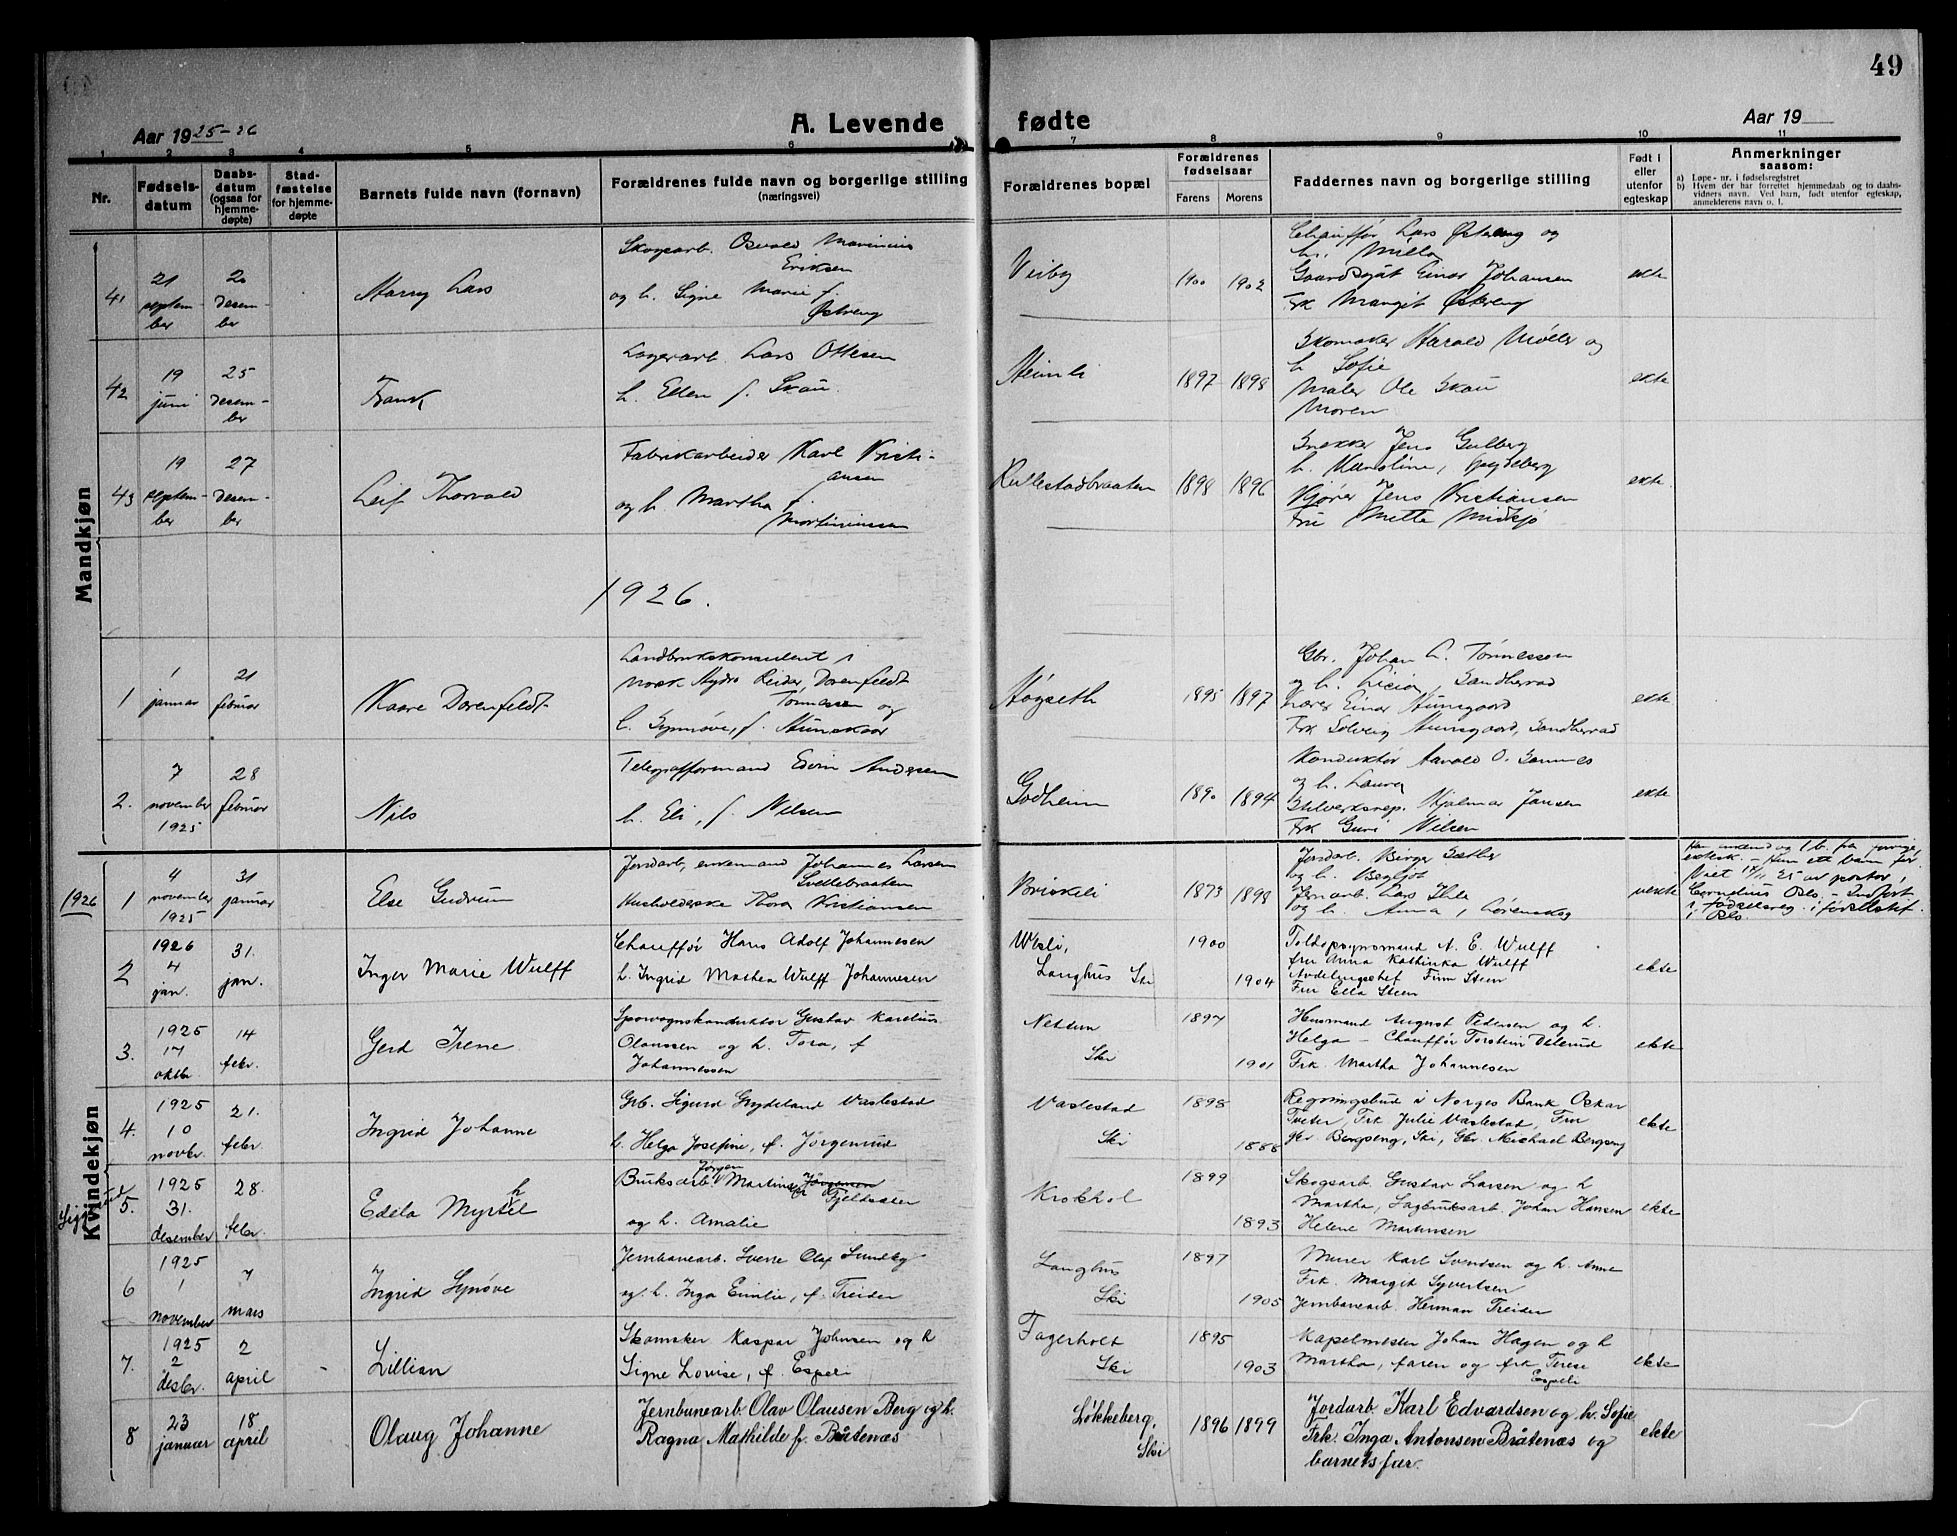 49
Aar 1925-26
A. Levende
fødte
Aar 19
1 2 3 4 5 6 7 8 9 10 11
Nr.
Fødsels-
datum
Daabs-
datum
(ogsaa for
hjemme-
døpte)
Stad-
fæstelse
for hjemme-
døpte
Barnets fulde navn (fornavn)
Forældrenes fulde navn og borgerlige stilling
(næringsvei)
Forældrenes bopæl
Forældrenes
fødselsaar
Farens
Morens
Faddernes navn og borgerlige stilling
Født i
eller
utenfor
egteskap
Anmerkninger
saasom:
a) Løpe-nr. i fødselsregistret
b) Hvem der har forrettet hjemmedaab og to daabs-
vidners navn. Ved barn, født utenfor egteskap,
anmelderens navn o. l.
Mandkjøn
41
21
septem-
ber
20
desem-
ber
Harry Lars
Skogsarb. Osvald Marinius
Eriksen
og h. Signe Marie f.
Østreng
Veiby
1900
1902
Chauffør Lars Østreng og
h. Milla
Gaardsgut Einar Johansen
Frk Margit Østreng
ekte
42
19
juni
25
desem-
ber
Frank
Lagerarb. Lars Ottesen
h. Ellen f. Skau
Heimli
1897
1898
Skomaker Harald Møller og
h Sofie
Maler Ole Skau
Moren
ekte
43
19
septem-
ber
27
desem-
ber
Leif Thorvald
Fabrikarbeider Karl Kristi-
ansen
og h. Martha f.
Martiniussen
Kullestadbraaten
1898
1896
Snekker Jens Gulberg
h. Karoline, Spydeberg
Kjører Jens Kristiansen
Fru Mette Midsjø
ekte
1926.
1
1
januar
21
februar
Kaare Dorenfeldt
Landbrukskonsulent i
Norsk Hydro Reidar Dorenfeldt
Tønnessen og
h. Synnøve, f. Hunskaar
Høgseth
1895
1897
Gbr. Johan L. Tønnessen
og h. Licia, Sandherrad
Lærer Einar Hunsgaard
Frk Solveig Hunsgaard, Sandherrad
ekte
2.
7
november
1925
28
februar
Nils
Telegrafformand Edvin Andersen
h. Eli, f. Nilsen
Godheim
1890
1894
Konduktør Harald O. Sannes
og h. Laura
Stilverksrep. Hjalmar Jansen
Frk Guri Nilsen
ekte
Kvindekjøn
1926
1
4
november
1925
31
januar
Else Gudrun
Jordarb., enkemand Johannes Larsen
Svellebraaten
Husholderske Thora Kristiansen
Briskeli
1873
1898
Jordarb. Birger Sæther
og h. Bergljot
Jernarb. Lars Ihle
og h. Anna, Lørenskog
uekte
Han enkem. og 1 b. fra forrige
ektesk. - Hun ett barn før
Viet 14/11 25 av pastor
Cornelius Oslo. - Indført
i fødselsreg. i fødselstif.
i Oslo
2
1926
4
jan.
31.
jan.
Inger Marie Wulff
Chauffør Hans Adolf Johannesen
h. Ingrid Mathea Wulff Johannesen
Vesli,
Langhus Ski
1900
1904
Toldopsynsmand A. E. Wulff
fru Anna Kathinka Wulff
Avdelingschef Finn Steen
Fru Ella Steen
ekte
3.
1925
17
oktbr.
14
febr.
Gerd Irene
Sporvognskonduktør Gustav Karelius
Olaussen og h. Tora, f
Johannessen
Nettum
Ski
1897
1901
Husmand August Pedersen og h.
Helga - Chauffør Torstein Dalerud
Frk. Martha Johannesen
ekte
4.
1925
10
novbr.
21.
febr
Ingrid Johanne
Grb. Sigurd Grydeland Vaslestad
h. Helga Josefine, f. Jørgenrud
Vaslestad
Ski
1898
1888
Regningsbud i Norges Bank Oskar
Tveter, Frk Julie Vaslestad, Fru
gbr Bergseng, Ski, Gbr. Michael Bergseng
ekte
5.
1925
31.
desember
28.
febr.
Edela Myrtel
h
Bruksarb. Martinsen Jørgensen
Jørgen
Fjeldsæter
og h. Amalie
Krokhol
1899
1893
Skogsarb Gustav Larsen og h
Martha, Sagbruksarb. Johan Hansen
Helene Martinsen
ekte
6
1925
1
november
7
mars
Ingrid Synøve
Jernbanearb. Sverre Olaf Sundby
og h. Inga Emilie, f. Treider
Langhus
Ski
1897
1905
Murer Karl Svendsen og h. Anne
Frk. Margit Syvertsen
Jernbanearb. Herman Treider
7.
1925
2
desbr.
2
april
Lillian
Skomaker Kaspar Johnsen og h
Signe Lovise, f. Espeli
Fagerholt
Ski
1895
1903
Kapelmester Johan Hagen og h
Martha, faren og frk Terese
Espeli
ekte
8
23
januar
18
april
Olaug Johanne
Jernbanearb Olav Olausen Berg og h.
Ragna Mathilde f. Bråtenas
Løkkeberg,
Ski
1896
1899
Jordarb Karl Edvardsen og h. Sofie
Frk. Inga Antonsen Bråtenas og
barnets far.
ekte